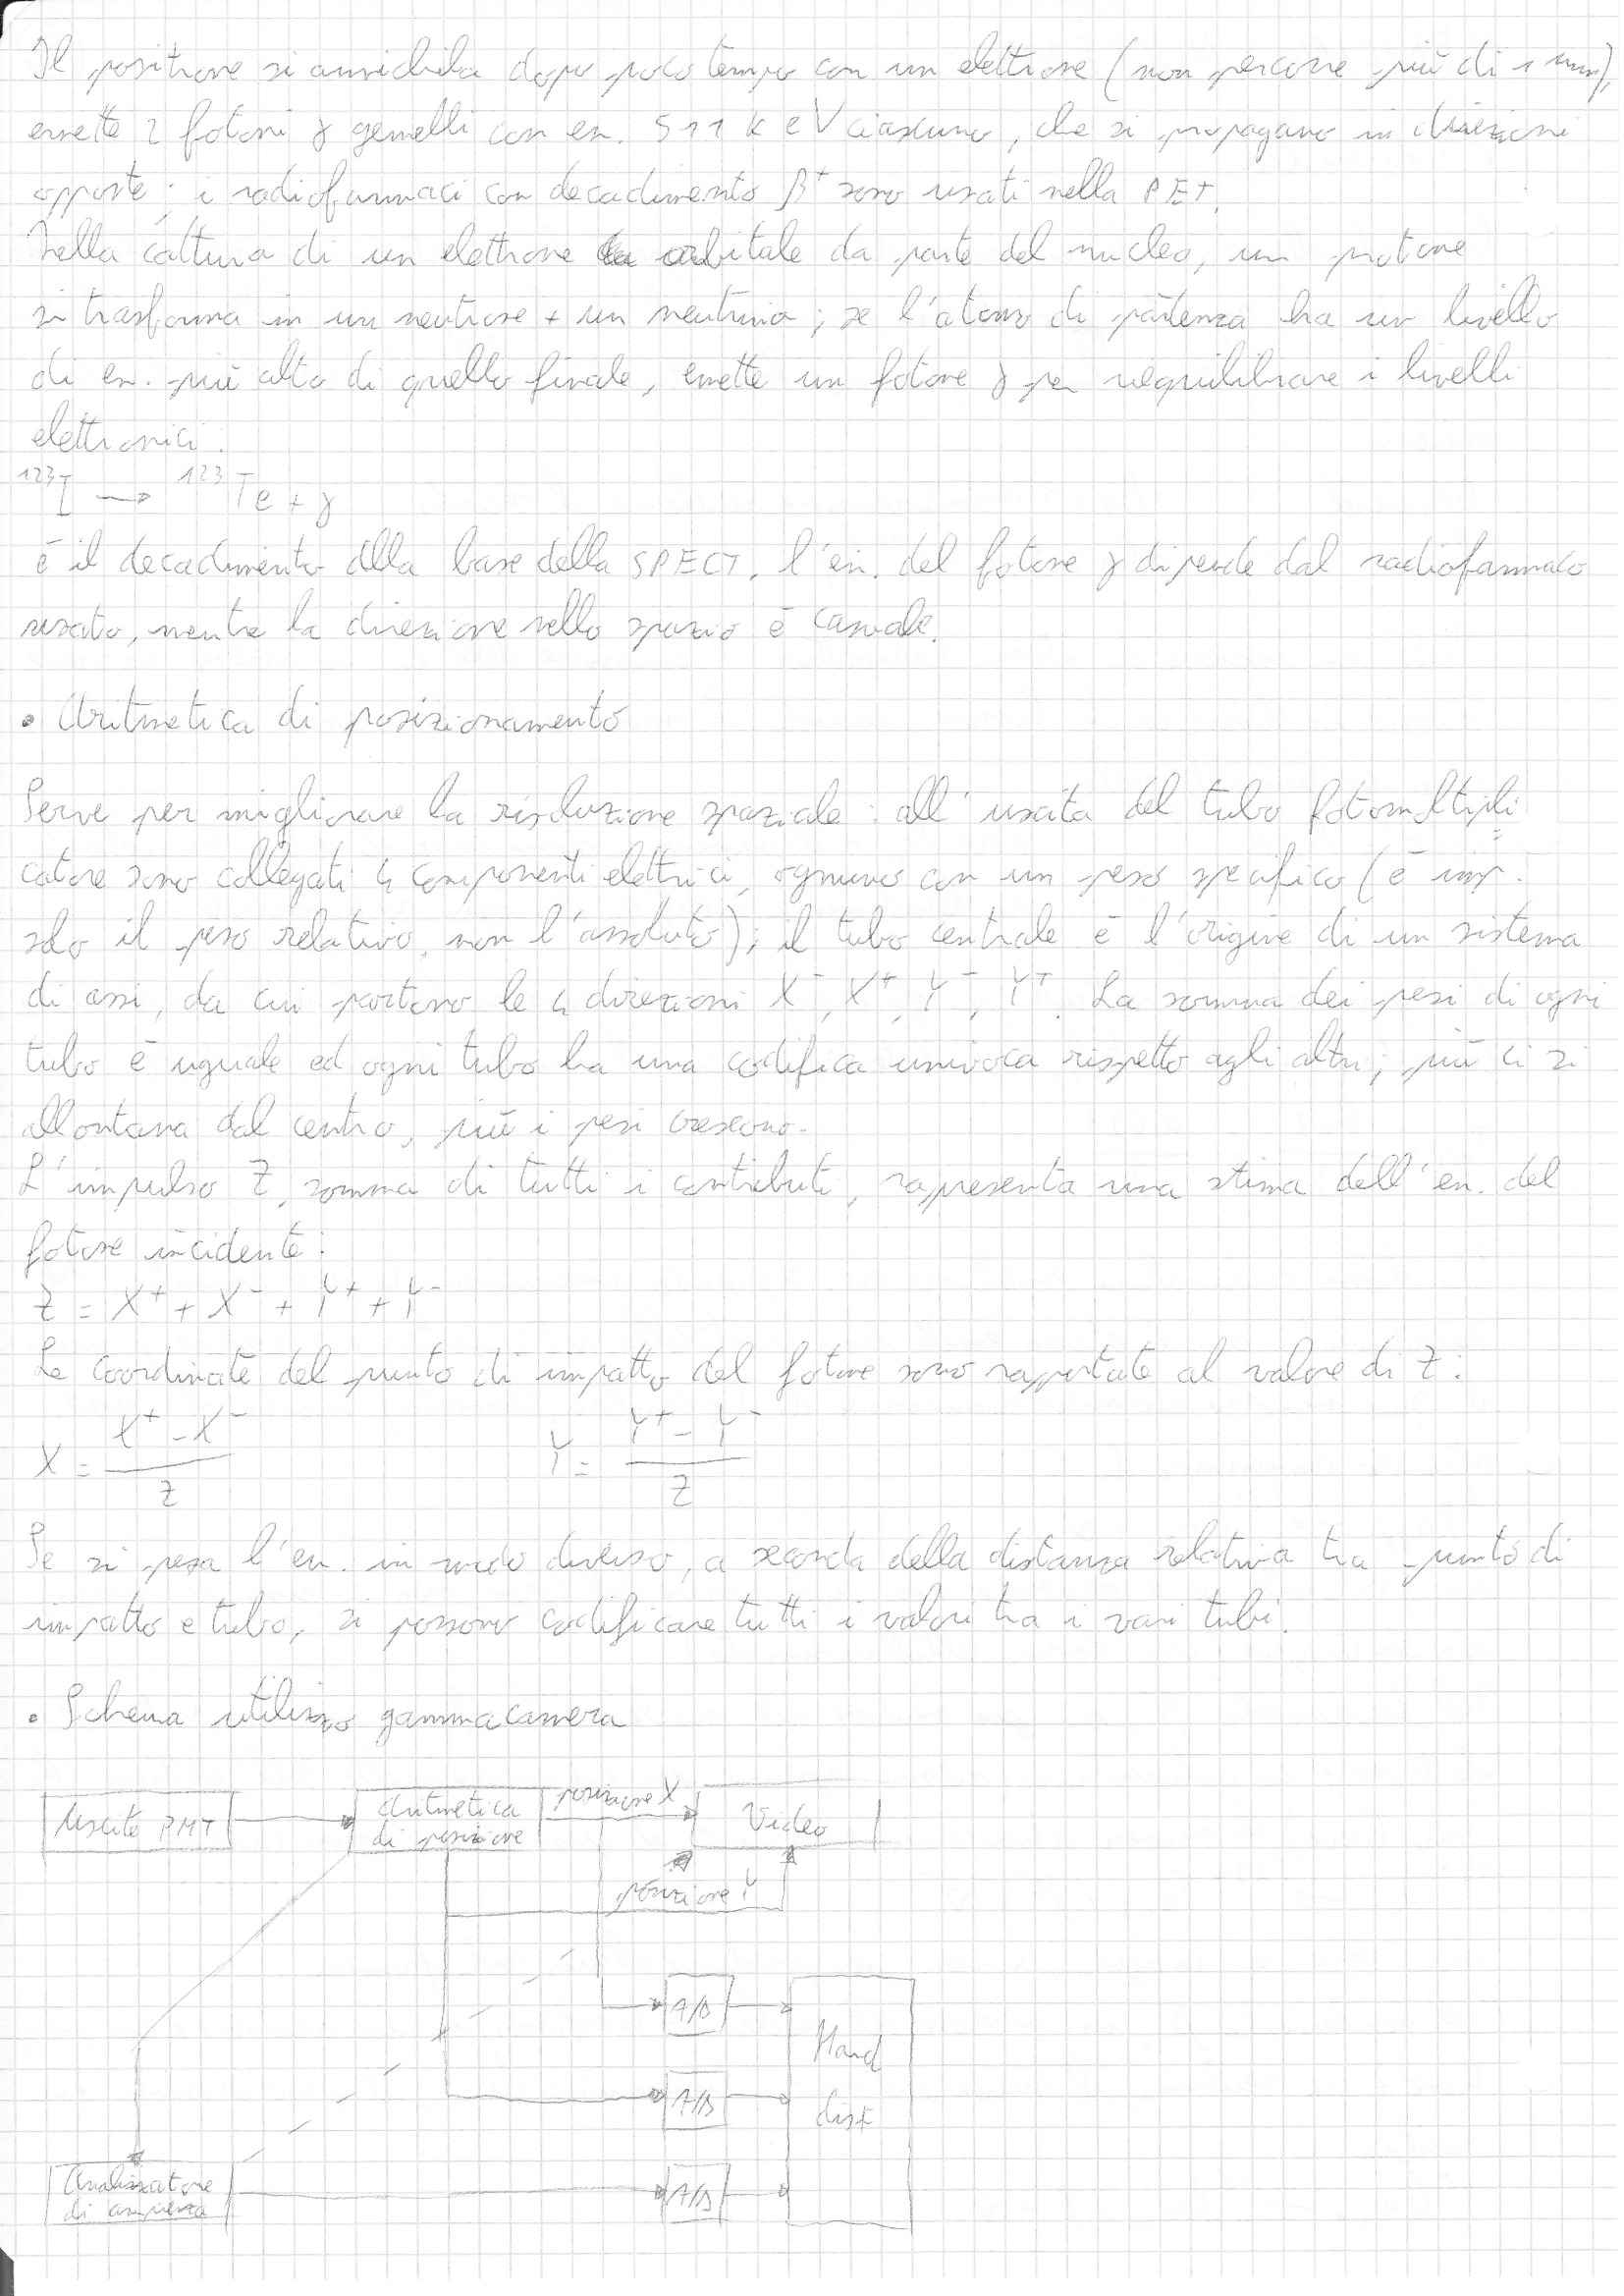 Il positrone si annichila dopo poco tempo con un elettrone (non percorre più di 1 mm),
emette 2 fotoni γ gemelli con en. 511 KeV ciascuno, che si propagano in direzioni
opposte; i radiofarmaci con decadimento β⁺ sono usati nella PET.
Nella cattura di un elettrone orbitale da parte del nucleo, un protone
si trasforma in un neutrone + un neutrino; se l'atomo di partenza ha un livello
di en. più alto di quello finale, emette un fotone γ per riequilibrare i livelli
elettronici.
¹²³I → ¹²³Te + γ
è il decadimento alla base della SPECT. l'en. del fotone γ dipende dal radiofarmaco
usato, mentre la direzione nello spazio è casuale.
• Aritmetica di posizionamento
Serve per migliorare la risoluzione spaziale: all'uscita del tubo fotomoltipli
catore sono collegati 4 componenti elettrici, ognuno con un peso specifico (è imp.
solo il peso relativo, non l'assoluto); il tubo centrale è l'origine di un sistema
di assi, da cui partono le 4 direzioni X⁻, X⁺, Y⁻, Y⁺. La somma dei pesi di ogni
tubo è uguale ed ogni tubo ha una codifica univoca rispetto agli altri; più ci si
allontana dal centro, più i pesi crescono.
L'impulso Z, somma di tutti i contributi, rappresenta una stima dell'en. del
fotone incidente:
Z = X⁺ + X⁻ + Y⁺ + Y⁻
Le coordinate del punto di impatto del fotone sono rapportate al valore di Z:
X = (X⁺ - X⁻)/Z Y = (Y⁺ - Y⁻)/Z
Se si pesa l'en. in modo diverso, a seconda della distanza relativa tra punto di
impatto e tubo, si possono codificare tutti i valori tra i vari tubi.
• Schema utilizzo gammacamera
Uscite PMT
Aritmetica
di posizione
posizione X
Video
posizione Y
A/D
Hard
A/D
disk
Analizzatore
di ampiezza
A/D